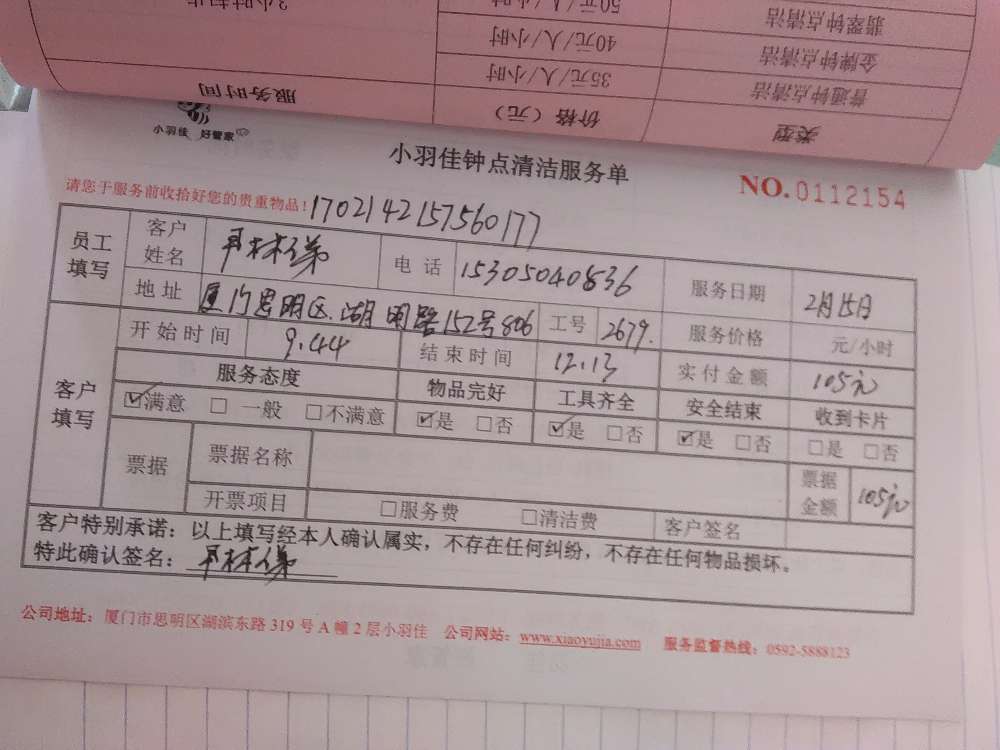 3小时起步
50元/人/小时
翡翠钟点清洁
40元/人/小时
金牌钟点清洁
35元/人/小时
普通钟点清洁
服务时间 价格（元） 类型
小羽佳 好管家
小羽佳钟点清洁服务单
NO.0112154
请您于服务前收拾好您的贵重物品！1702142157560177
员工填写 客户姓名 林弟 电话 15305040836 服务日期 2月15日
地址 厦门思明区.湖明路152号806 工号 2679. 服务价格 元/小时
客户填写 开始时间 9.44 结束时间 12.13 实付金额 105元
服务态度 物品完好 工具齐全 安全结束 收到卡片
☑满意 □一般 □不满意 ☑是 □否 ☑是 □否 ☑是 □否 □是 □否
票据 票据名称 票据金额 105元
开票项目 □服务费 □清洁费 客户签名
客户特别承诺：以上填写经本人确认属实，不存在任何纠纷，不存在任何物品损坏。
特此确认签名：林弟
公司地址：厦门市思明区湖滨东路319号A幢2层小羽佳 公司网站：www.xiaoyujia.com 服务监督热线：0592-5888123